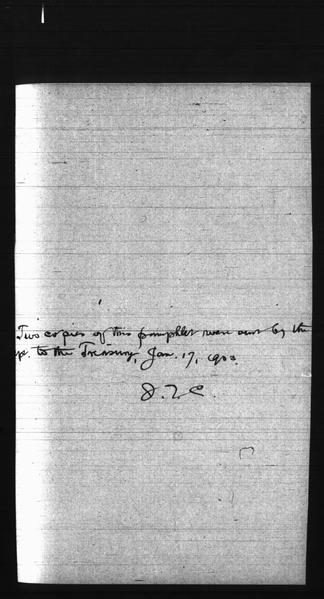 Two copies of this pamphlet were sent by the
p. to the Treasury, Jan. 17, 1900.